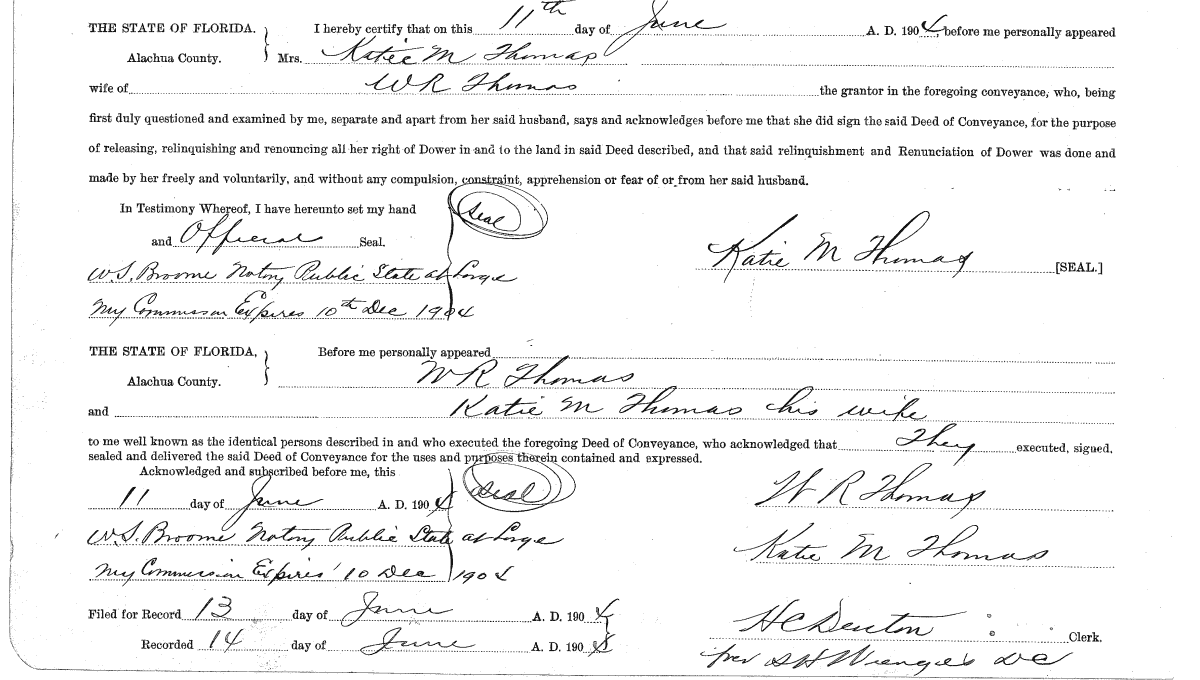 THE STATE OF FLORIDA. } I hereby certify that on this 11th day of June A. D. 1904, before me personally appeared
Alachua County. Mrs. Katie M Thomas
wife of W R Thomas the grantor in the foregoing conveyance, who, being
first duly questioned and examined by me, separate and apart from her said husband, says and acknowledges before me that she did sign the said Deed of Conveyance, for the purpose
of releasing, relinquishing and renouncing all her right of Dower in and to the land in said Deed described, and that said relinquishment and Renunciation of Dower was done and
made by her freely and voluntarily, and without any compulsion, constraint, apprehension or fear of or from her said husband.
In Testimony Whereof, I have hereunto set my hand
and Official Seal.
Seal
Katie M Thomas [SEAL.]
W.S. Broome Notary Public State at Large
My Commission Expires 10th Dec 1904
THE STATE OF FLORIDA, } Before me personally appeared
Alachua County. W R Thomas
and Katie M Thomas his wife
to me well known as the identical persons described in and who executed the foregoing Deed of Conveyance, who acknowledged that They executed, signed,
sealed and delivered the said Deed of Conveyance for the uses and purposes therein contained and expressed.
Acknowledged and subscribed before me, this
11 day of June A. D. 1904
Seal
W R Thomas
W.S. Broome Notary Public State at Large
Katie M Thomas
My Commission Expires 10 Dec 1904
Filed for Record 13 day of June A. D. 1904
H C Denton Clerk.
Recorded 14 day of June A. D. 1904
per S H DC